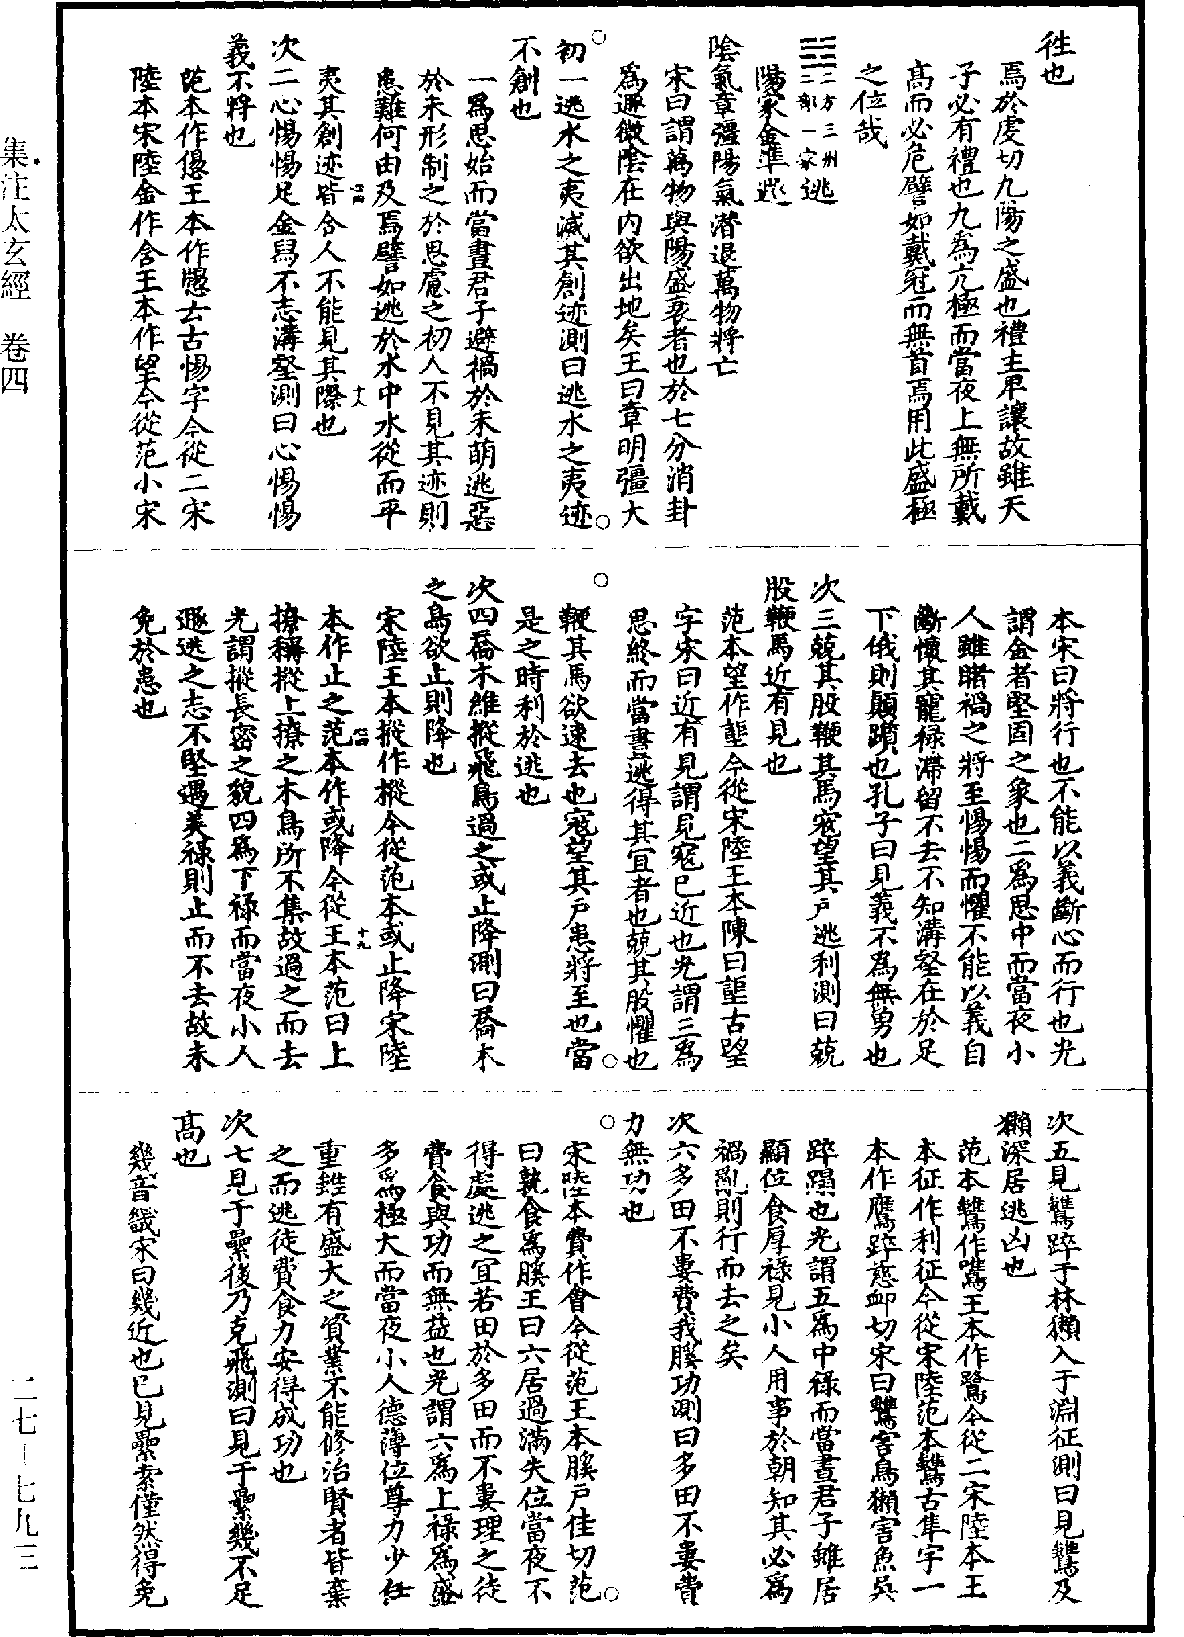 徃也
焉於虔切九陽之盛也禮主卑讓故雖天
子必有禮也九爲亢極而當夜上無所戴
髙而必危譬如戴冠而無首焉用此盛極
之位哉
二方三州
二部一家
逃
陽家金準遯
陰氣章彊陽氣潛退萬物將亡
宋曰謂萬物與陽盛衰者也於七分消卦
爲遯微陰在内欲出地矣王曰章明彊大
初一逃水之夷滅其創迹測曰逃水之夷迹
不創也
一爲思始而當晝君子避禍於未萌逃惡
於未形制之於思慮之初人不見其迹則
患難何由及焉譬如逃於水中水從而平
夷其創迹皆合人不能見其際也
次二心惕惕足金舄不志溝壑測曰心惕惕
義不將也
范本作惖王本作愳去古惕字今從二宋
陸本宋陸金作含王本作望今從范小宋
本宋曰將行也不能以義斷心而行也光
謂金者堅固之象也二爲思中而當夜小
人雖睹禍之將至惕惕而懼不能以義自
斷懷其寵禄滯留不去不知溝壑在於足
下俄則顛躓也孔子曰見義不爲無勇也
次三兢其股鞭其馬寇望其户逃利測曰兢
股鞭馬近有見也
范本望作朢今從宋陸王本陳曰朢古望
字宋曰近有見謂見寇已近也光謂三爲
思終而當晝逃得其宜者也兢其股懼也
鞭其馬欲速去也寇望其户患將至也當
是之時利於逃也
次四喬木維摐飛鳥過之或止降測曰喬木
之鳥欲止則降也
宋陸王本摐作樅今從范本或止降宋陸
本作止之范本作或降今從王本范曰上
撩稱摐上撩之木鳥所不集故過之而去
光謂摐長密之貌四爲下禄而當夜小人
遯逃之志不堅遇美禄則止而不去故未
免於患也
次五見鷔踤于林獺入于淵征測曰見鷔及
獺深居逃凶也
范本鷔作嶲王本作鷺今從二宋陸本王
本征作利征今從宋陸范本鷔古隼字一
本作鷹踤慈卹切宋曰鷔害鳥獺害魚吴
踤躡也光謂五爲中禄而當晝君子雖居
顯位食厚禄見小人用事於朝知其必爲
禍亂則行而去之矣
次六多田不婁費我䐼功測曰多田不婁費
力無功也
宋陸本費作曾今從范王本䐼户佳切范
曰孰食爲䐼王曰六居過滿失位當夜不
得處逃之宜若田於多田而不婁理之徒
費食與功而無益也光謂六爲上禄爲盛
多爲極大而當夜小人德薄位尊力少任
重雖有盛大之資業不能修治賢者皆棄
之而逃徒費食力安得成功也
次七見于纍後乃克飛測曰見于纍幾不足
髙也
幾音畿宋曰幾近也已見纍索僅然得免
集注太玄經　卷四
二七—七九三